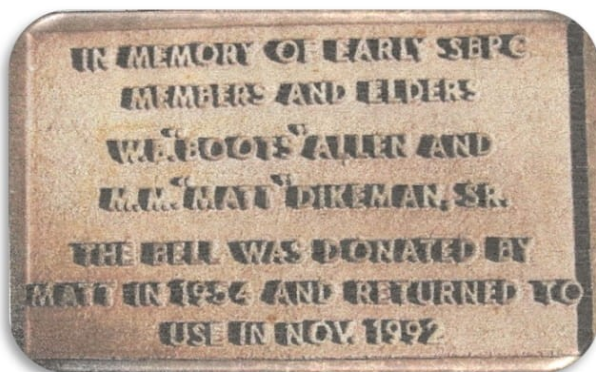 IN MEMORY OF EARLY SBPC
MEMBERS AND ELDERS
W.B. "BOOTS" ALLEN AND
M.M. "MATT" DIKEMAN, SR.
THE BELL WAS DONATED BY
MATT IN 1954 AND RETURNED TO
USE IN NOV. 1992